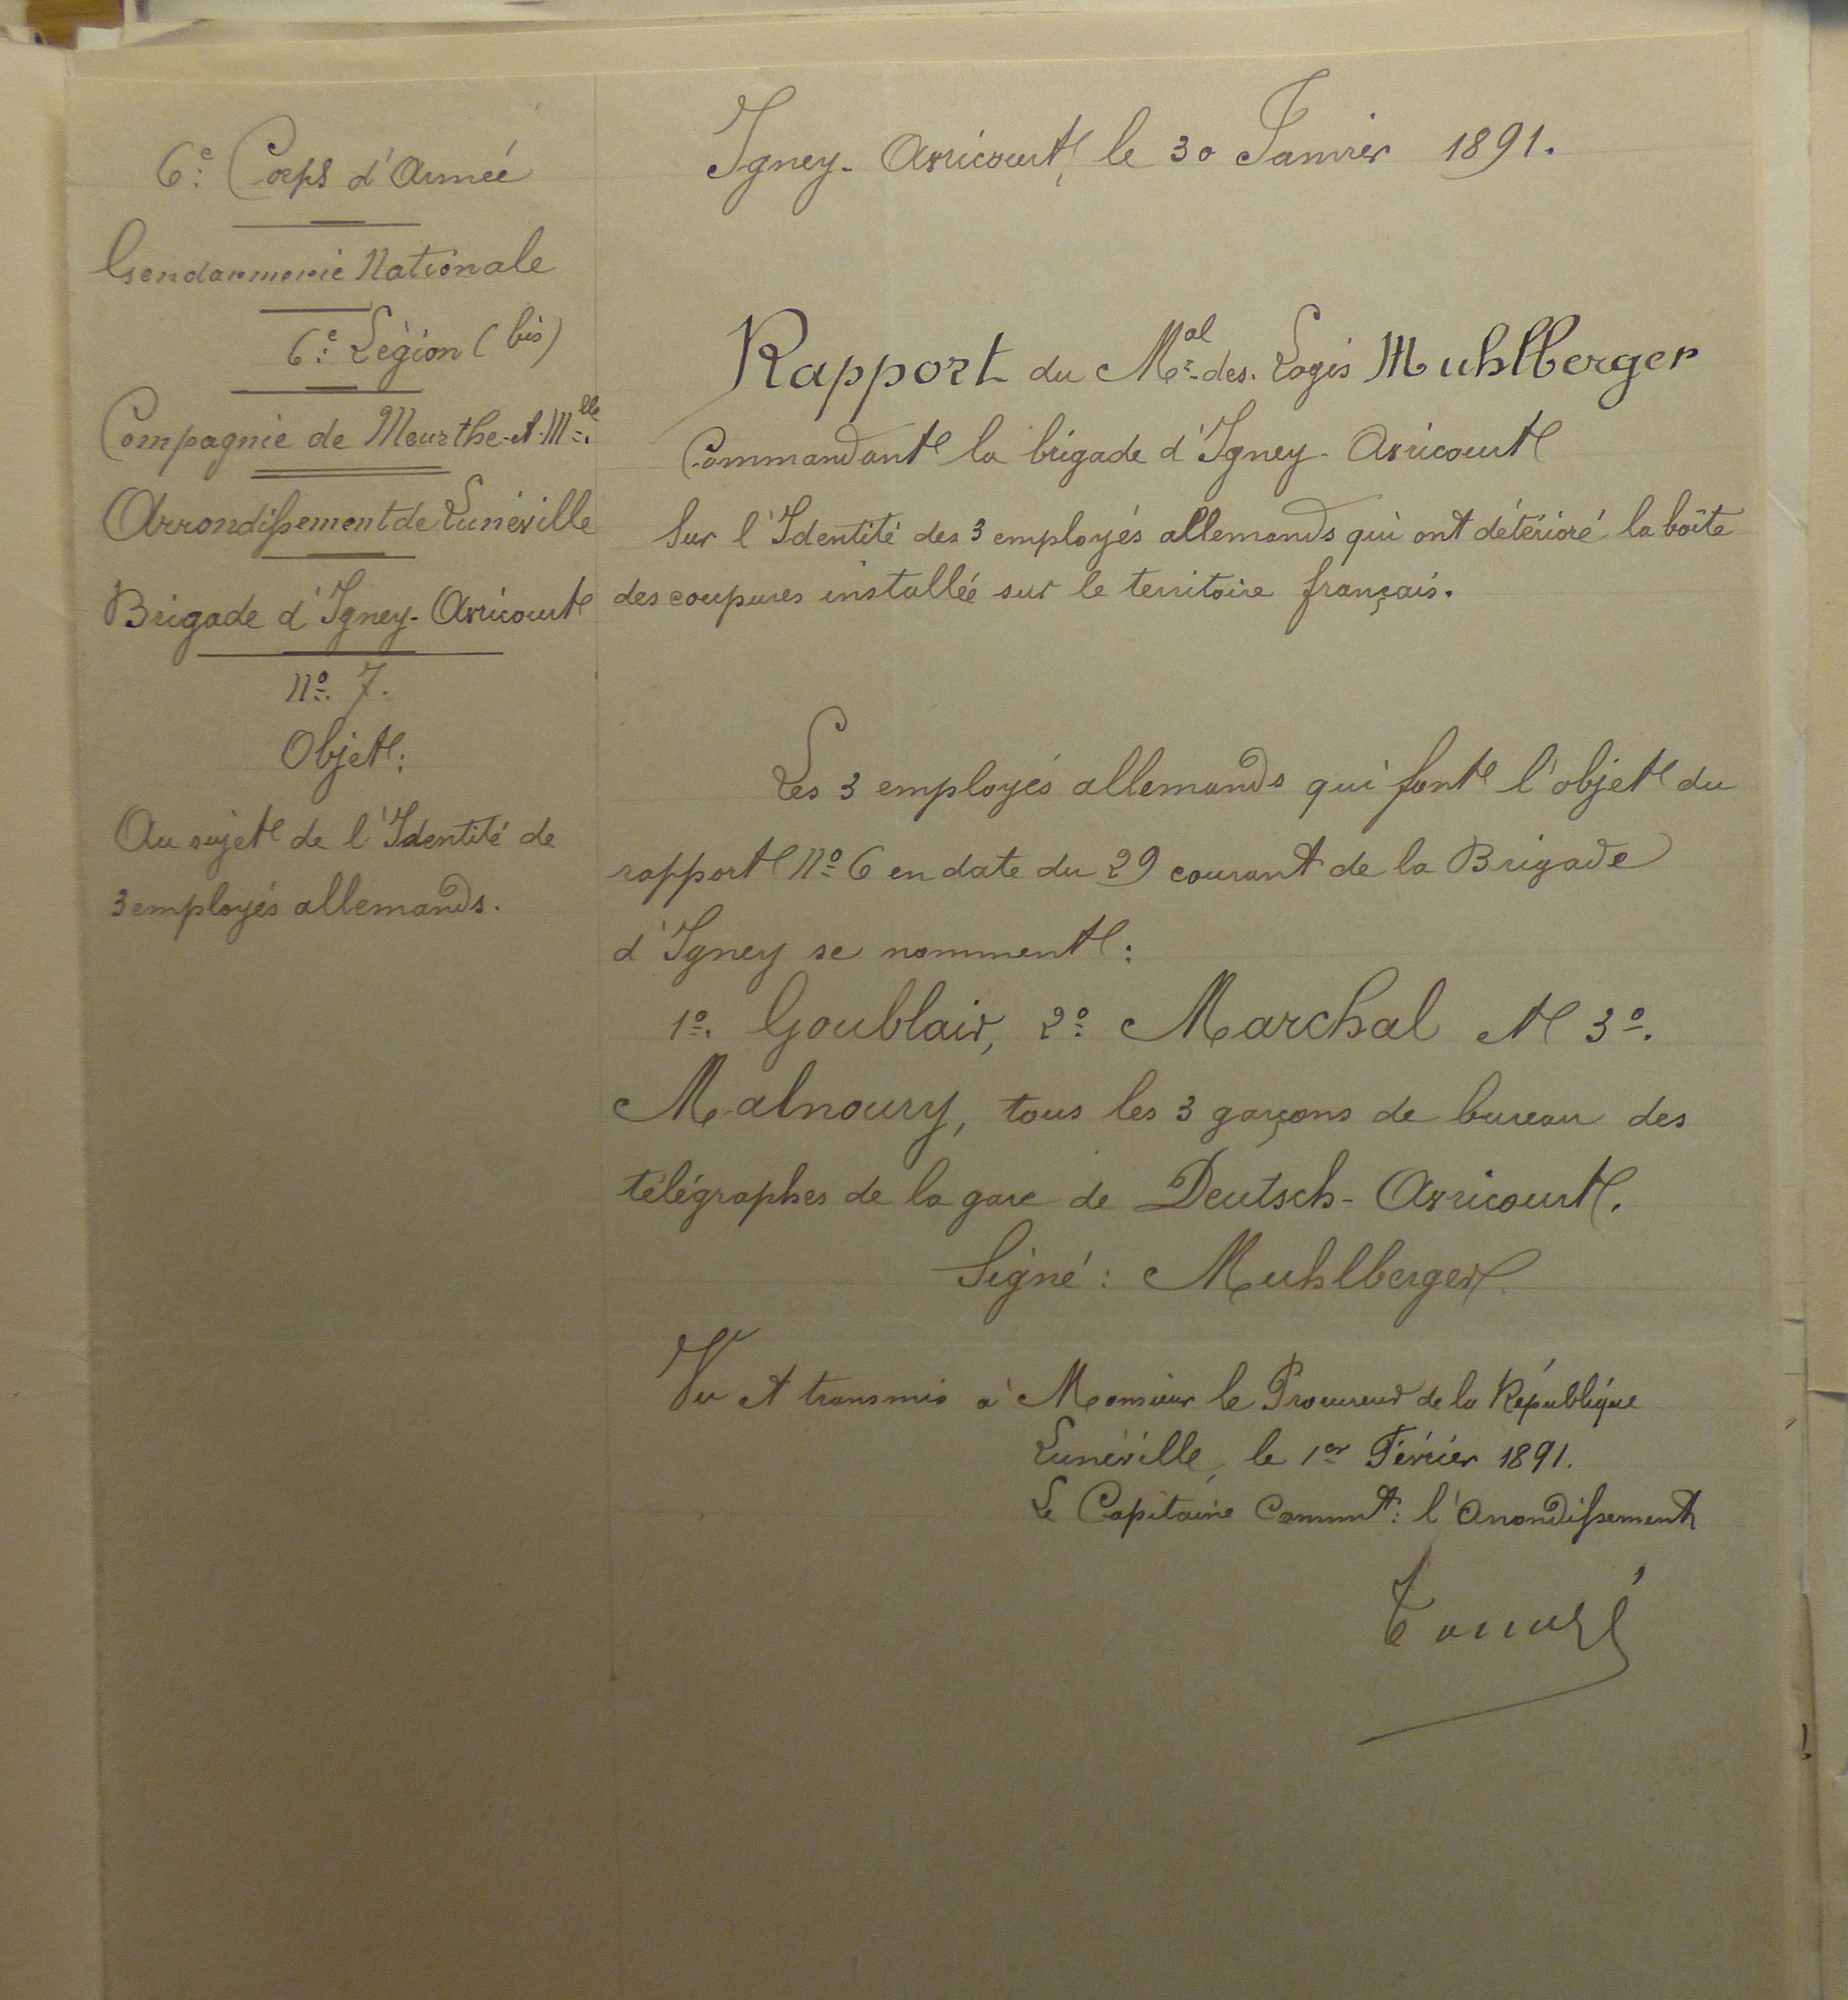 6e Corps d'Armée
Gendarmerie Nationale
6e Légion (bis)
Compagnie de Meurthe-et-Mlle
Arrondissement de Lunéville
Brigade d'Igney-Avricourt
No. 7.
Objet :
Au sujet de l'Identité de
3 employés allemands.
Igney-Avricourt, le 30 Janvier 1891.
Rapport du Mal-des-Logis Muhlberger
Commandant la brigade d'Igney-Avricourt
Sur l'Identité des 3 employés allemands qui ont détérioré la boîte
des coupures installée sur le territoire français.
Les 3 employés allemands qui font l'objet du
rapport No 6 en date du 29 courant de la Brigade
d'Igney se nomment :
1o. Goublair, 2o Marchal et 3o.
Malnoury, tous les 3 garçons de bureau des
télégraphes de la gare de Deutsch-Avricourt.
Signé : Muhlberger
Vu et transmis à Monsieur le Procureur de la République
Lunéville, le 1er Février 1891.
Le Capitaine Commt : l'Arrondissement